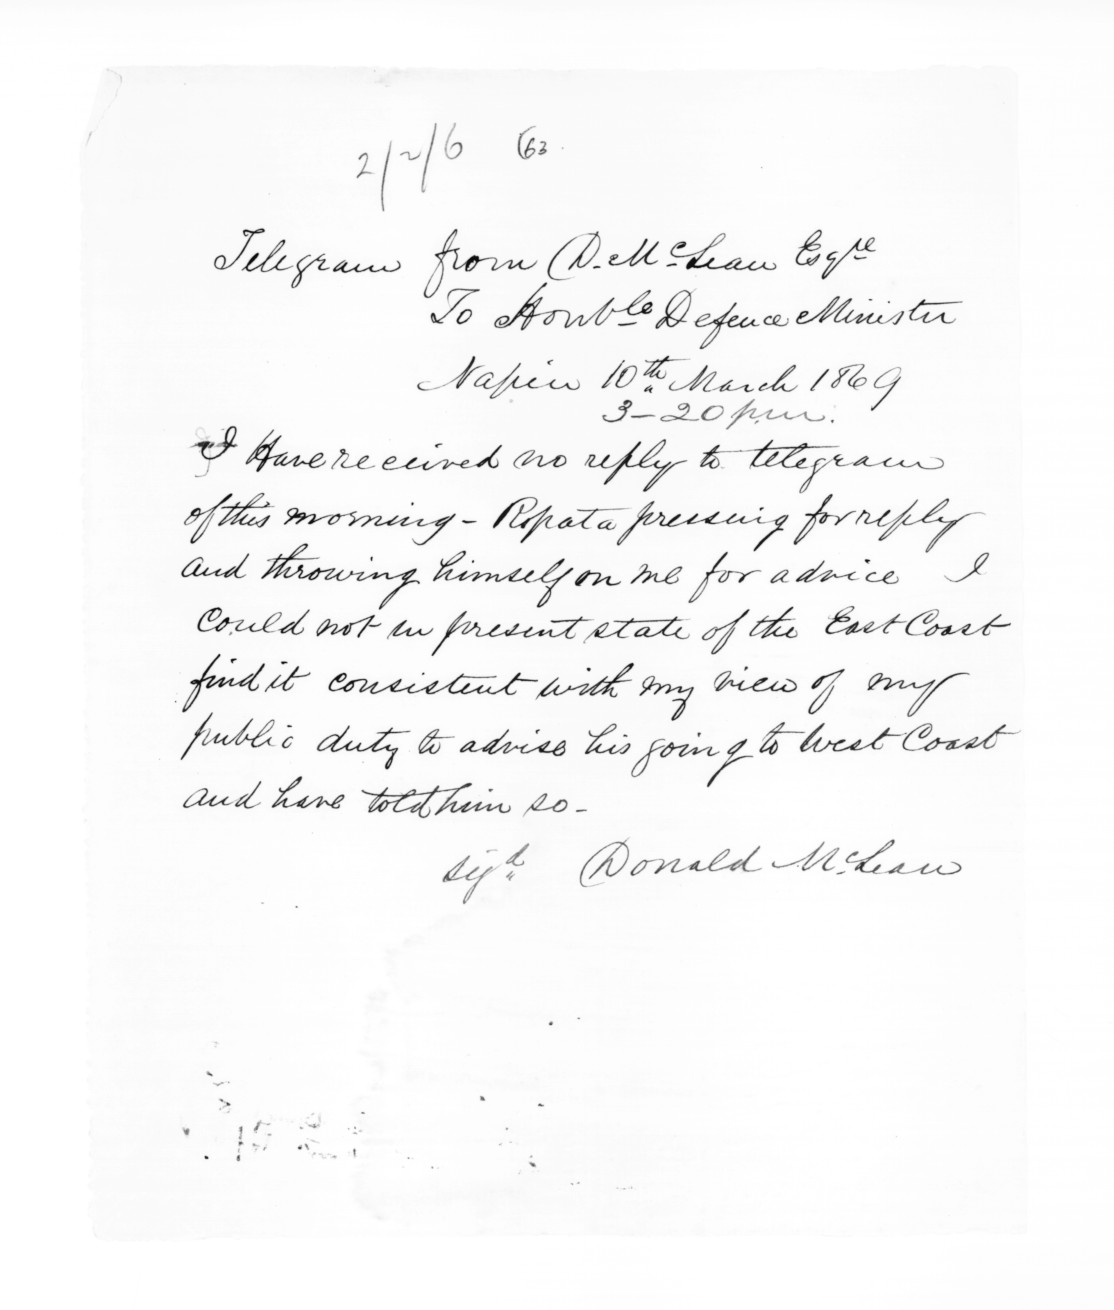 2/2/6 (63
Telegram from D. McLean Esqre
To Honble Defence Minister
Napier 10th March 1869
3-20 p.m.
I Have received no reply to telegram
of this morning - Ropata pressing for reply
and throwing himself on me for advice I
could not in present state of the East Coast
find it consistent with my view of my
public duty to advise his going to West Coast
and have told him so -
sigd Donald McLean